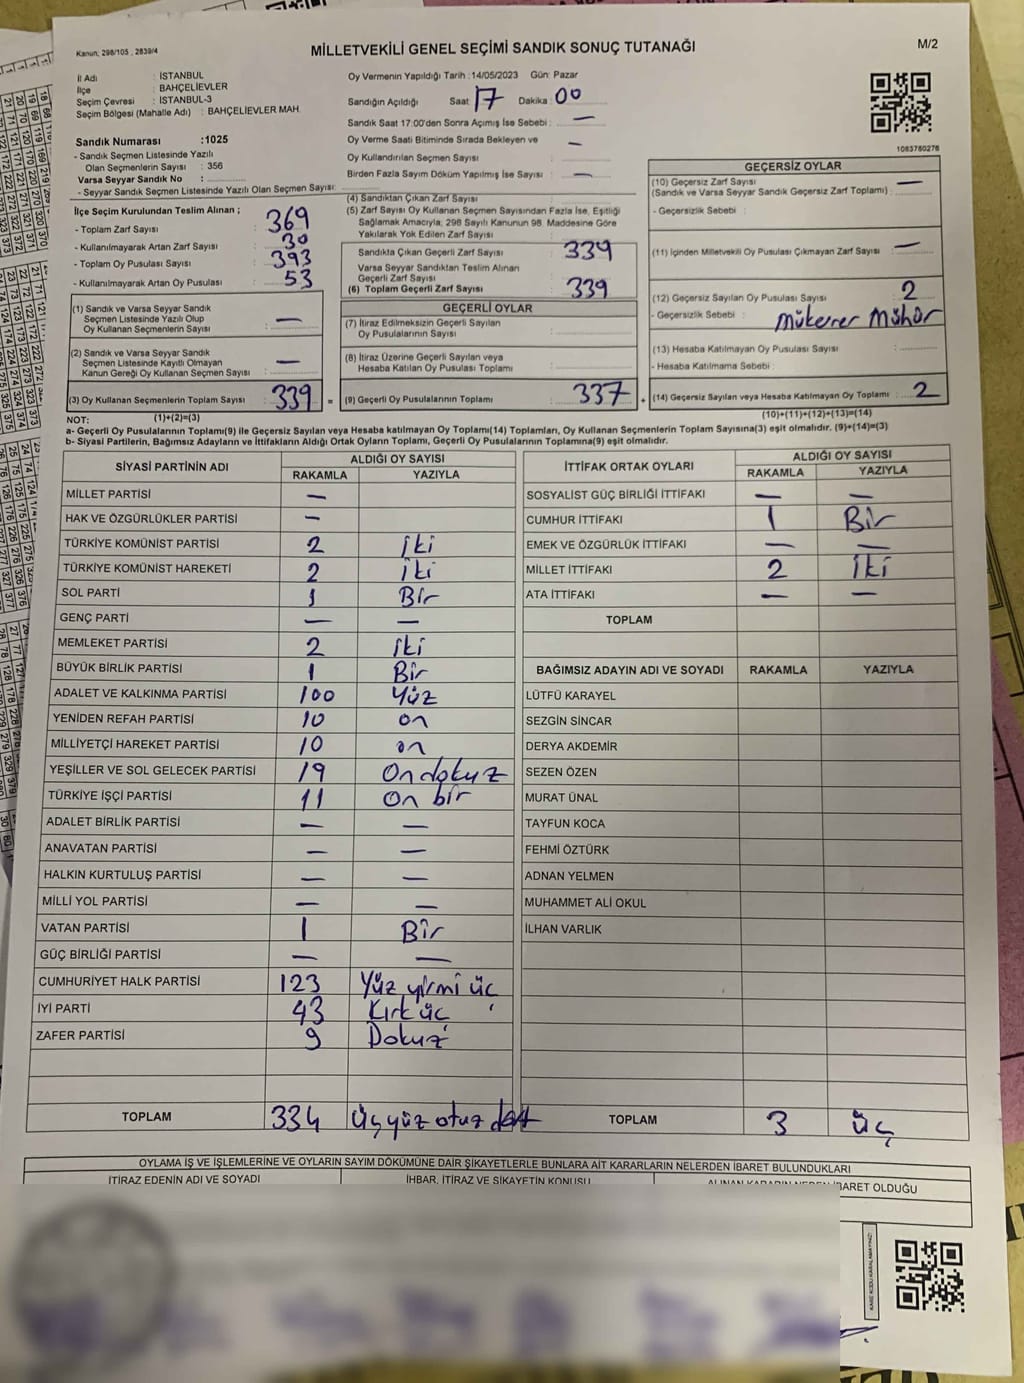 Kanun; 298/105 , 2839/4
MİLLETVEKİLİ GENEL SEÇİMİ SANDIK SONUÇ TUTANAĞI
M/2
İl Adı : İSTANBUL
İlçe : BAHÇELİEVLER
Seçim Çevresi : İSTANBUL-3
Seçim Bölgesi (Mahalle Adı) : BAHÇELİEVLER MAH.
Sandık Numarası :1025
- Sandık Seçmen Listesinde Yazılı
Olan Seçmenlerin Sayısı : 356
Varsa Seyyar Sandık No :
- Seyyar Sandık Seçmen Listesinde Yazılı Olan Seçmen Sayısı:
Oy Vermenin Yapıldığı Tarih :14/05/2023 Gün: Pazar
Sandığın Açıldığı Saat 17 Dakika : 00
Sandık Saat 17:00'den Sonra Açımış İse Sebebi : —
Oy Verme Saati Bitiminde Sırada Bekleyen ve —
Oy Kullandırılan Seçmen Sayısı
Birden Fazla Sayım Döküm Yapılmış İse Sayısı : —
1083780276
İlçe Seçim Kurulundan Teslim Alınan ;
- Toplam Zarf Sayısı : 369
- Kullanılmayarak Artan Zarf Sayısı : 30
- Toplam Oy Pusulası Sayısı : 393
- Kullanılmayarak Artan Oy Pusulası : 53
(1) Sandık ve Varsa Seyyar Sandık
Seçmen Listesinde Yazılı Olup
Oy Kullanan Seçmenlerin Sayısı : —
(2) Sandık ve Varsa Seyyar Sandık
Seçmen Listesinde Kayıtlı Olmayan
Kanun Gereği Oy Kullanan Seçmen Sayısı : —
(3) Oy Kullanan Seçmenlerin Toplam Sayısı : 339 =
(4) Sandıktan Çıkan Zarf Sayısı :
(5) Zarf Sayısı Oy Kullanan Seçmen Sayısından Fazla İse, Eşitliği
Sağlamak Amacıyla, 298 Sayılı Kanunun 98. Maddesine Göre
Yakılarak Yok Edilen Zarf Sayısı :
Sandıkta Çıkan Geçerli Zarf Sayısı : 339
Varsa Seyyar Sandıktan Teslim Alınan
Geçerli Zarf Sayısı :
(6) Toplam Geçerli Zarf Sayısı : 339
GEÇERLİ OYLAR
(7) İtiraz Edilmeksizin Geçerli Sayılan
Oy Pusulalarının Sayısı :
(8) İtiraz Üzerine Geçerli Sayılan veya
Hesaba Katılan Oy Pusulası Toplamı :
(9) Geçerli Oy Pusulalarının Toplamı : 337 +
GEÇERSİZ OYLAR
(10) Geçersiz Zarf Sayısı —
(Sandık ve Varsa Seyyar Sandık Geçersiz Zarf Toplamı) :
- Geçersizlik Sebebi :
(11) İçinden Milletvekili Oy Pusulası Çıkmayan Zarf Sayısı : —
(12) Geçersiz Sayılan Oy Pusulası Sayısı : 2
- Geçersizlik Sebebi : Mükerrer Mühür
(13) Hesaba Katılmayan Oy Pusulası Sayısı :
- Hesaba Katılmama Sebebi :
(14) Geçersiz Sayılan veya Hesaba Katılmayan Oy Toplamı : 2
NOT: (1)+(2)=(3)
(10)+(11)+(12)+(13)=(14)
a- Geçerli Oy Pusulalarının Toplamı(9) ile Geçersiz Sayılan veya Hesaba katılmayan Oy Toplamı(14) Toplamları, Oy Kullanan Seçmenlerin Toplam Sayısına(3) eşit olmalıdır. (9)+(14)=(3)
b- Siyasi Partilerin, Bağımsız Adayların ve İttifakların Aldığı Ortak Oyların Toplamı, Geçerli Oy Pusulalarının Toplamına(9) eşit olmalıdır.
SİYASİ PARTİNİN ADI ALDIĞI OY SAYISI
RAKAMLA YAZIYLA
MİLLET PARTİSİ —
HAK VE ÖZGÜRLÜKLER PARTİSİ —
TÜRKİYE KOMÜNİST PARTİSİ 2 iki
TÜRKİYE KOMÜNİST HAREKETİ 2 iki
SOL PARTİ 1 Bir
GENÇ PARTİ — —
MEMLEKET PARTİSİ 2 iki
BÜYÜK BİRLİK PARTİSİ 1 Bir
ADALET VE KALKINMA PARTİSİ 100 Yüz
YENİDEN REFAH PARTİSİ 10 on
MİLLİYETÇİ HAREKET PARTİSİ 10 on
YEŞİLLER VE SOL GELECEK PARTİSİ 19 On dokuz
TÜRKİYE İŞÇİ PARTİSİ 11 On bir
ADALET BİRLİK PARTİSİ — —
ANAVATAN PARTİSİ — —
HALKIN KURTULUŞ PARTİSİ — —
MİLLİ YOL PARTİSİ — —
VATAN PARTİSİ 1 Bir
GÜÇ BİRLİĞİ PARTİSİ — —
CUMHURİYET HALK PARTİSİ 123 Yüz yirmi üç
İYİ PARTİ 43 Kırk üç
ZAFER PARTİSİ 9 Dokuz
TOPLAM 334 Üç yüz otuz dört
İTTİFAK ORTAK OYLARI ALDIĞI OY SAYISI
RAKAMLA YAZIYLA
SOSYALİST GÜÇ BİRLİĞİ İTTİFAKI — —
CUMHUR İTTİFAKI 1 Bir
EMEK VE ÖZGÜRLÜK İTTİFAKI — —
MİLLET İTTİFAKI 2 İki
ATA İTTİFAKI — —
TOPLAM
BAĞIMSIZ ADAYIN ADI VE SOYADI RAKAMLA YAZIYLA
LÜTFÜ KARAYEL
SEZGİN SİNCAR
DERYA AKDEMİR
SEZEN ÖZEN
MURAT ÜNAL
TAYFUN KOCA
FEHMİ ÖZTÜRK
ADNAN YELMEN
MUHAMMET ALİ OKUL
İLHAN VARLIK
TOPLAM 3 üç
OYLAMA İŞ VE İŞLEMLERİNE VE OYLARIN SAYIM DÖKÜMÜNE DAİR ŞİKAYETLERLE BUNLARA AİT KARARLARIN NELERDEN İBARET BULUNDUKLARI
İTİRAZ EDENİN ADI VE SOYADI İHBAR, İTİRAZ VE ŞİKAYETİN KONUSU ALINAN KARARIN NEDEN İBARET OLDUĞU